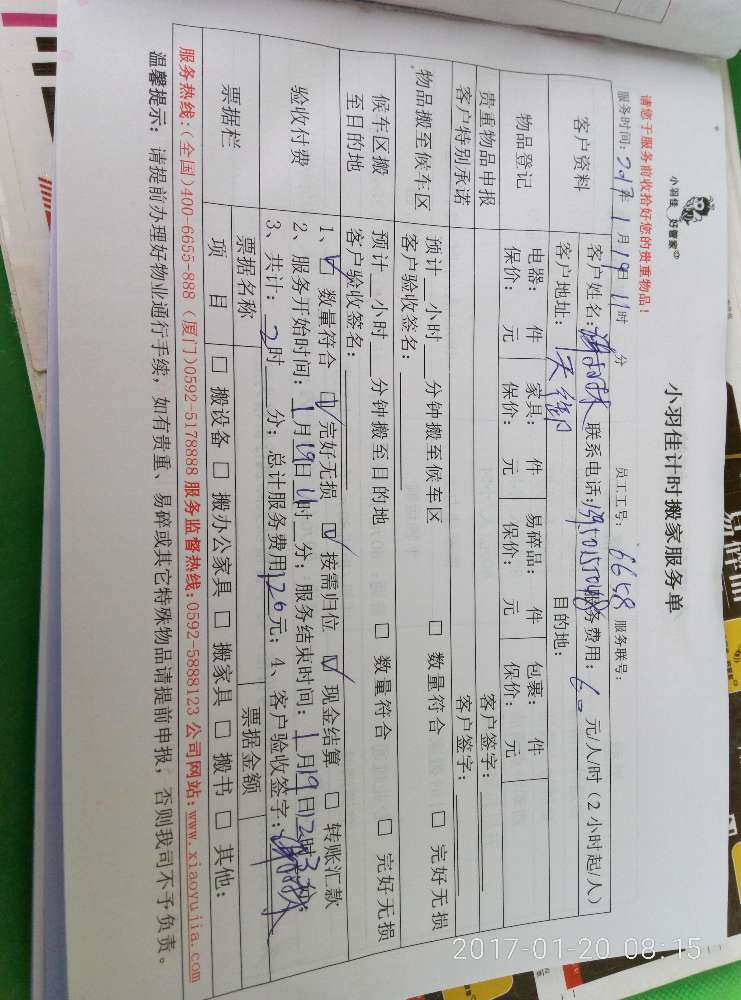 小羽佳 好管家
小羽佳计时搬家服务单
请您于服务前收拾好您的贵重物品！
服务时间：2017年 1月19日 11时 分 员工工号：6658 服务联号：
客户资料
客户姓名： 联系电话： 服务费用：60 元/人/时（2小时起/人）
客户地址： 目的地：
物品登记
电器： 件 家具： 件 易碎品： 件 包裹： 件
保价： 元 保价： 元 保价： 元 保价： 元
贵重物品申报 客户签字：
客户特别承诺 客户签字：
物品搬至候车区
预计 小时 分钟搬至候车区 □ 数量符合 □ 完好无损
客户验收签名：
候车区搬至目的地
预计 小时 分钟搬至目的地 □ 数量符合 □ 完好无损
客户验收签名：
验收付费
1、☑ 数量符合 ☑ 完好无损 ☑ 按需归位 ☑ 现金结算 □ 转账汇款
2、服务开始时间：1月19日11时 分；服务结束时间：1月19日12时3 分；
3、共计：2时 分；总计服务费用120元；4、客户验收签字：
票据栏
票据名称 票据金额
项目 □ 搬设备 □ 搬办公家具 □ 搬家具 □ 搬书 □ 其他：
服务热线：(全国)400-6655-888 (厦门)0592-5178888 服务监督热线：0592-5888123 公司网站：www.xiaoyujia.com
温馨提示：请提前办理好物业通行手续，如有贵重、易碎或其它特殊物品请提前申报，否则我司不予负责。
2017-01-20 08:15